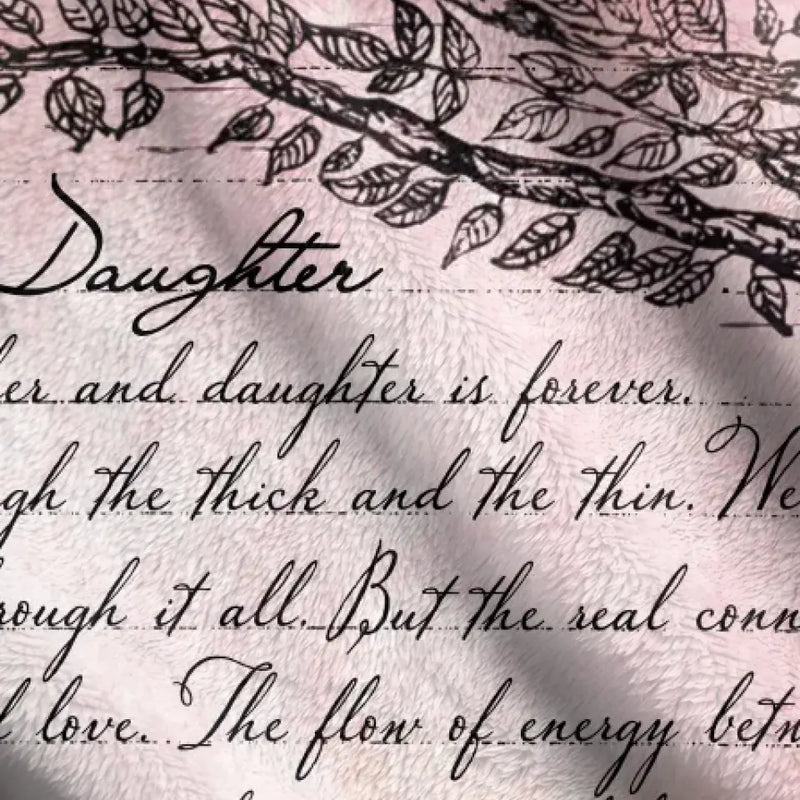 Daughter
and daughter is forever.
the thick and the thin. We
it all. But the real
love. The flow of energy